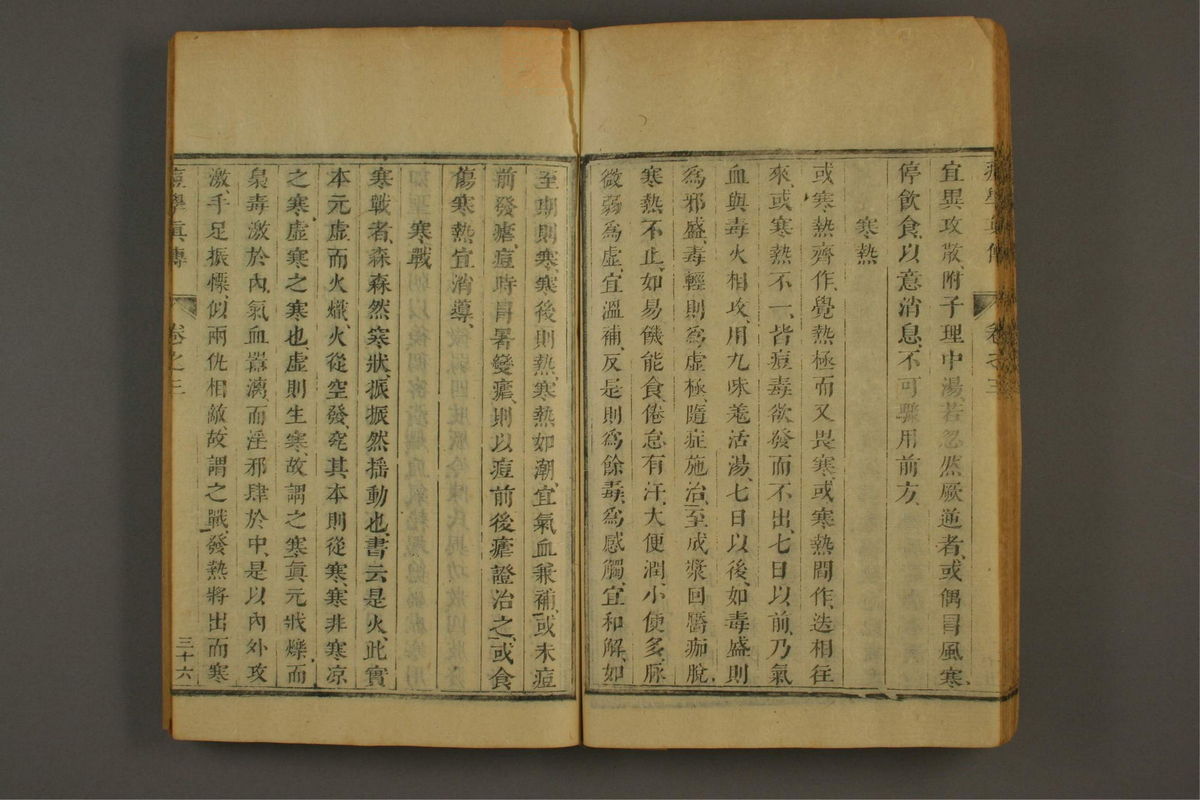 痘學真傳 卷之三
宜異攻散附子理中湯若忽然厥逆者、或偶冒風寒、
停飲食、以意消息、不可驟用前方、
寒熱
或寒熱齊作、覺熱極而又畏寒、或寒熱間作、迭相往
來、或寒熱不一、皆痘毒欲發而不出、七日以前、乃氣
血與毒火相攻、用九味羗活湯、七日以後、如毒盛則
為邪盛、毒輕則為虛極、隨症施治、至成漿回靨痂脫、
寒熱不止、如易饑能食、倦怠有汗、大便潤、小便多、脈
微弱為虛、宜溫補、反是則為餘毒、為感觸、宜和解、如
至期則寒、寒後則熱、寒熱如潮、宜氣血兼補、或未痘
前發瘧、痘時冒暑變瘧、則以痘前後瘧證治之、或食
傷寒熱、宜消導、
寒戰
寒戰者、森森然寒狀、振振然搖動也、書云是火、此實
本元虛而火熾、火從空發、究其本則從寒、寒非寒凉
之寒、虛寒之寒也、虛則生寒、故謂之寒、真元戕爍、而
梟毒激於內、氣血囂漓、而淫邪肆於中、是以內外攻
激、手足振慄、似兩仇相敵、故謂之戰、發熱將出而寒
痘學真傳 卷之三 三十六